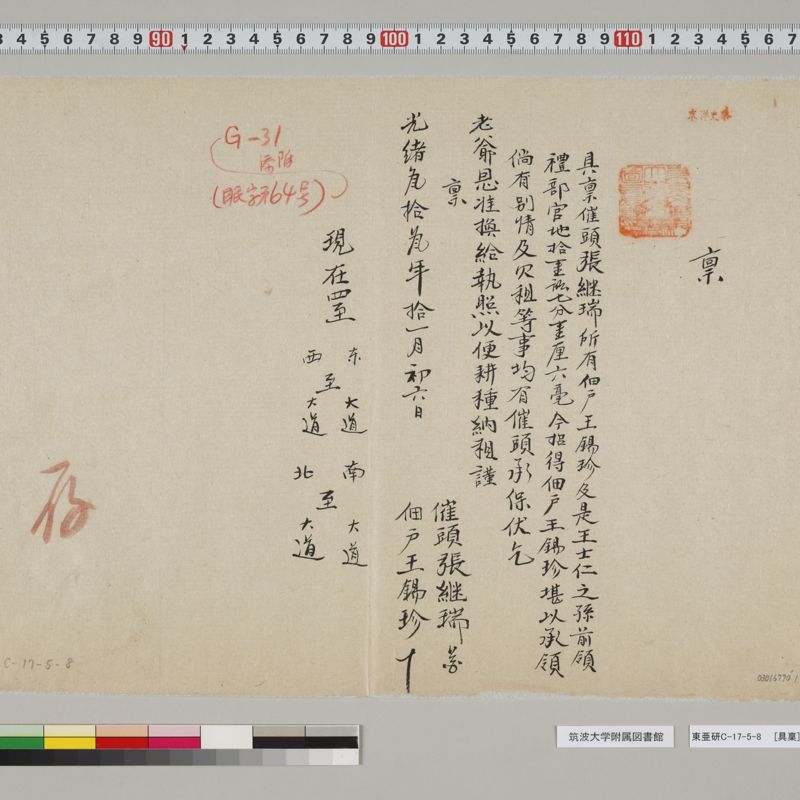 稟
具稟催頭張継瑞所有佃户王錫珍及是王士仁之孫前領
禮部官地拾壹畝七分壹厘六毫今招得佃户王錫珍堪以承領
倘有别情及欠租等事均有催頭承保伏乞
老爺恩准換給執照以便耕種納租謹
稟
光緒貳拾貳年拾一月初六日
催頭張継瑞
佃户王錫珍 十
現在四至
东 大道
至
西 大道
南 大道
至
北 大道
G-31
存
C-17-5-8
筑波大学附属図書館
東亜研C-17-5-8 [具稟]
3 4 5 6 7 8 9 90 1 2 3 4 5 6 7 8 9 100 1 2 3 4 5 6 7 8 9 110 1 2 3 4 5 6 7